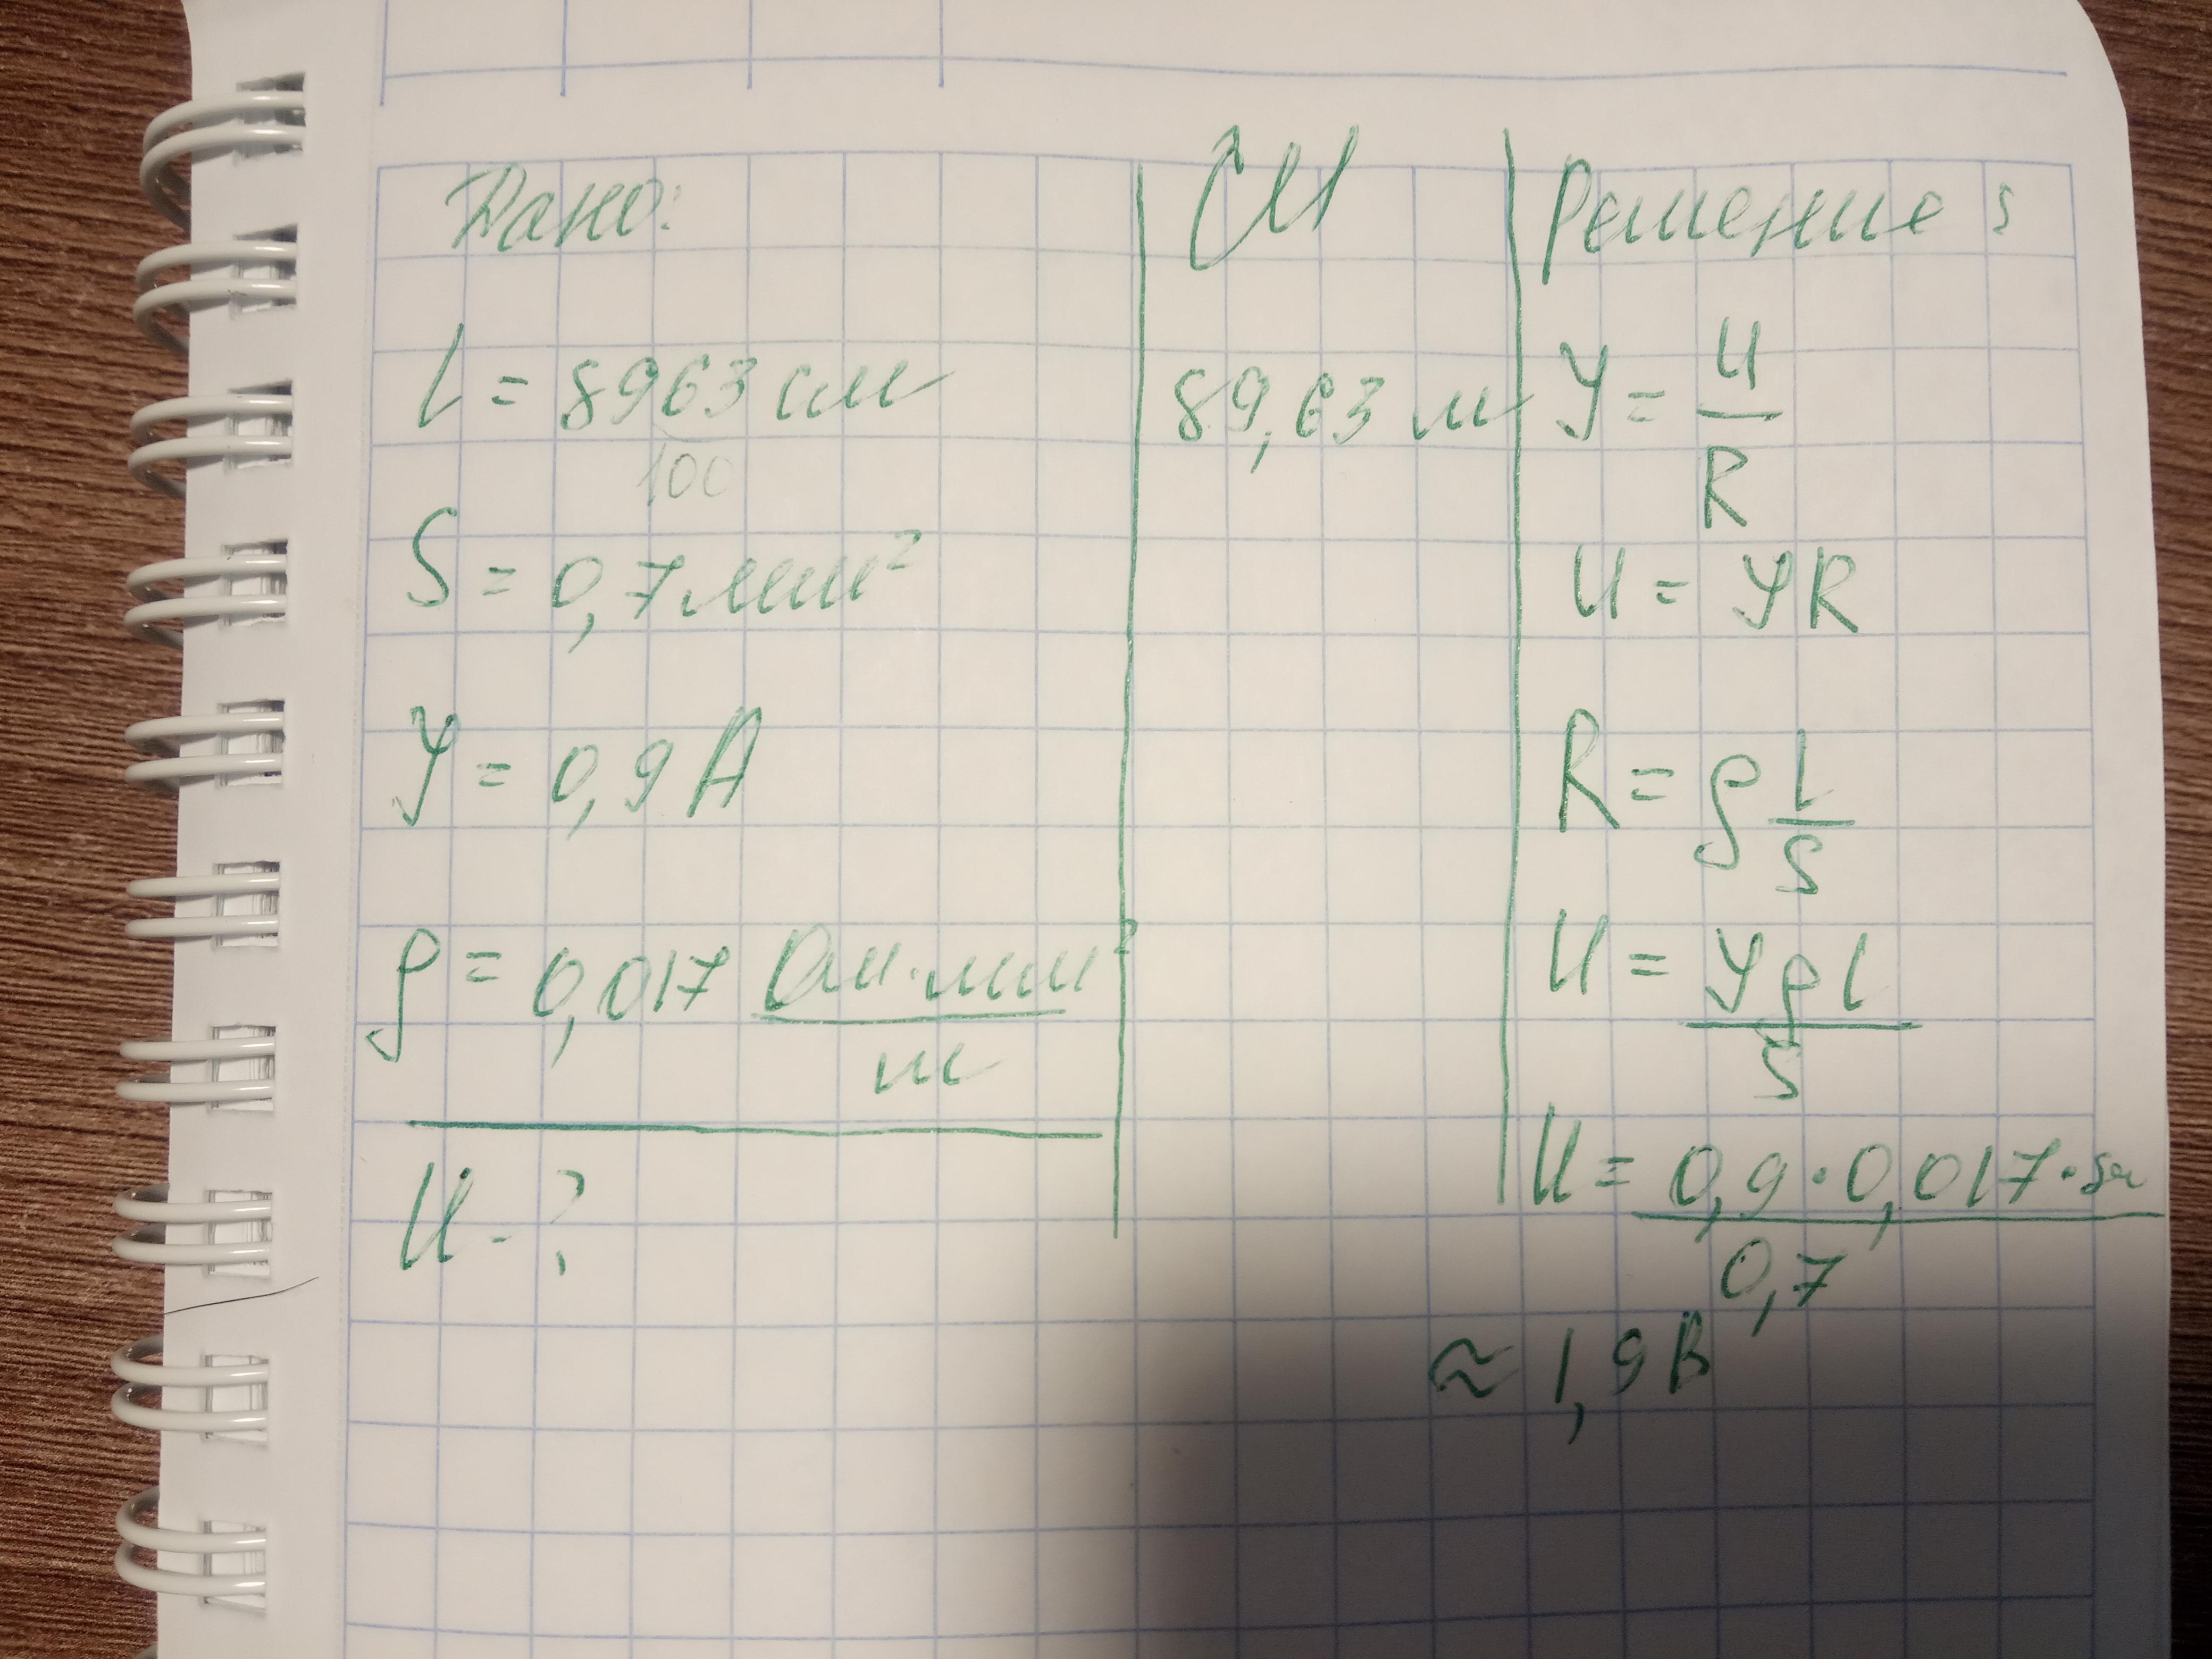 Дано:
l = 8963 см
100
S = 0,7 мм²
У = 0,9 А
ρ = 0,017 Ом·мм²
м
U - ?
СИ
89,63 м
Решение:
У = U
R
U = УR
R = ρ l
S
U = Уρl
S
U = 0,9·0,017·
0,7
≈ 1,9 В